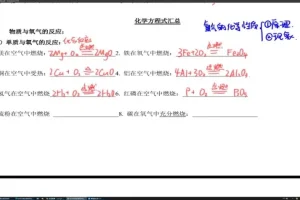 化学方程式汇总
物质与氧气的反应:
单质与氧气的反应: 化合反应
①原理
②现象
镁在空气中燃烧: 2Mg + O₂ 点燃 2MgO 2. 铁在氧气中燃烧: 3Fe+2O₂ 点燃 Fe₃O₄
铜在空气中受热: 2Cu + O₂ 2CuO 4. 铝在空气中燃烧: 4Al+3O₂ 点燃 2Al₂O₃
氢气在空气中燃烧: 2H₂+O₂ 点燃 2H₂O 6. 红磷在空气中燃烧: P + O₂ 点燃 P₂O₅
硫粉在空气中燃烧: 8. 碳在氧气中充分燃烧: